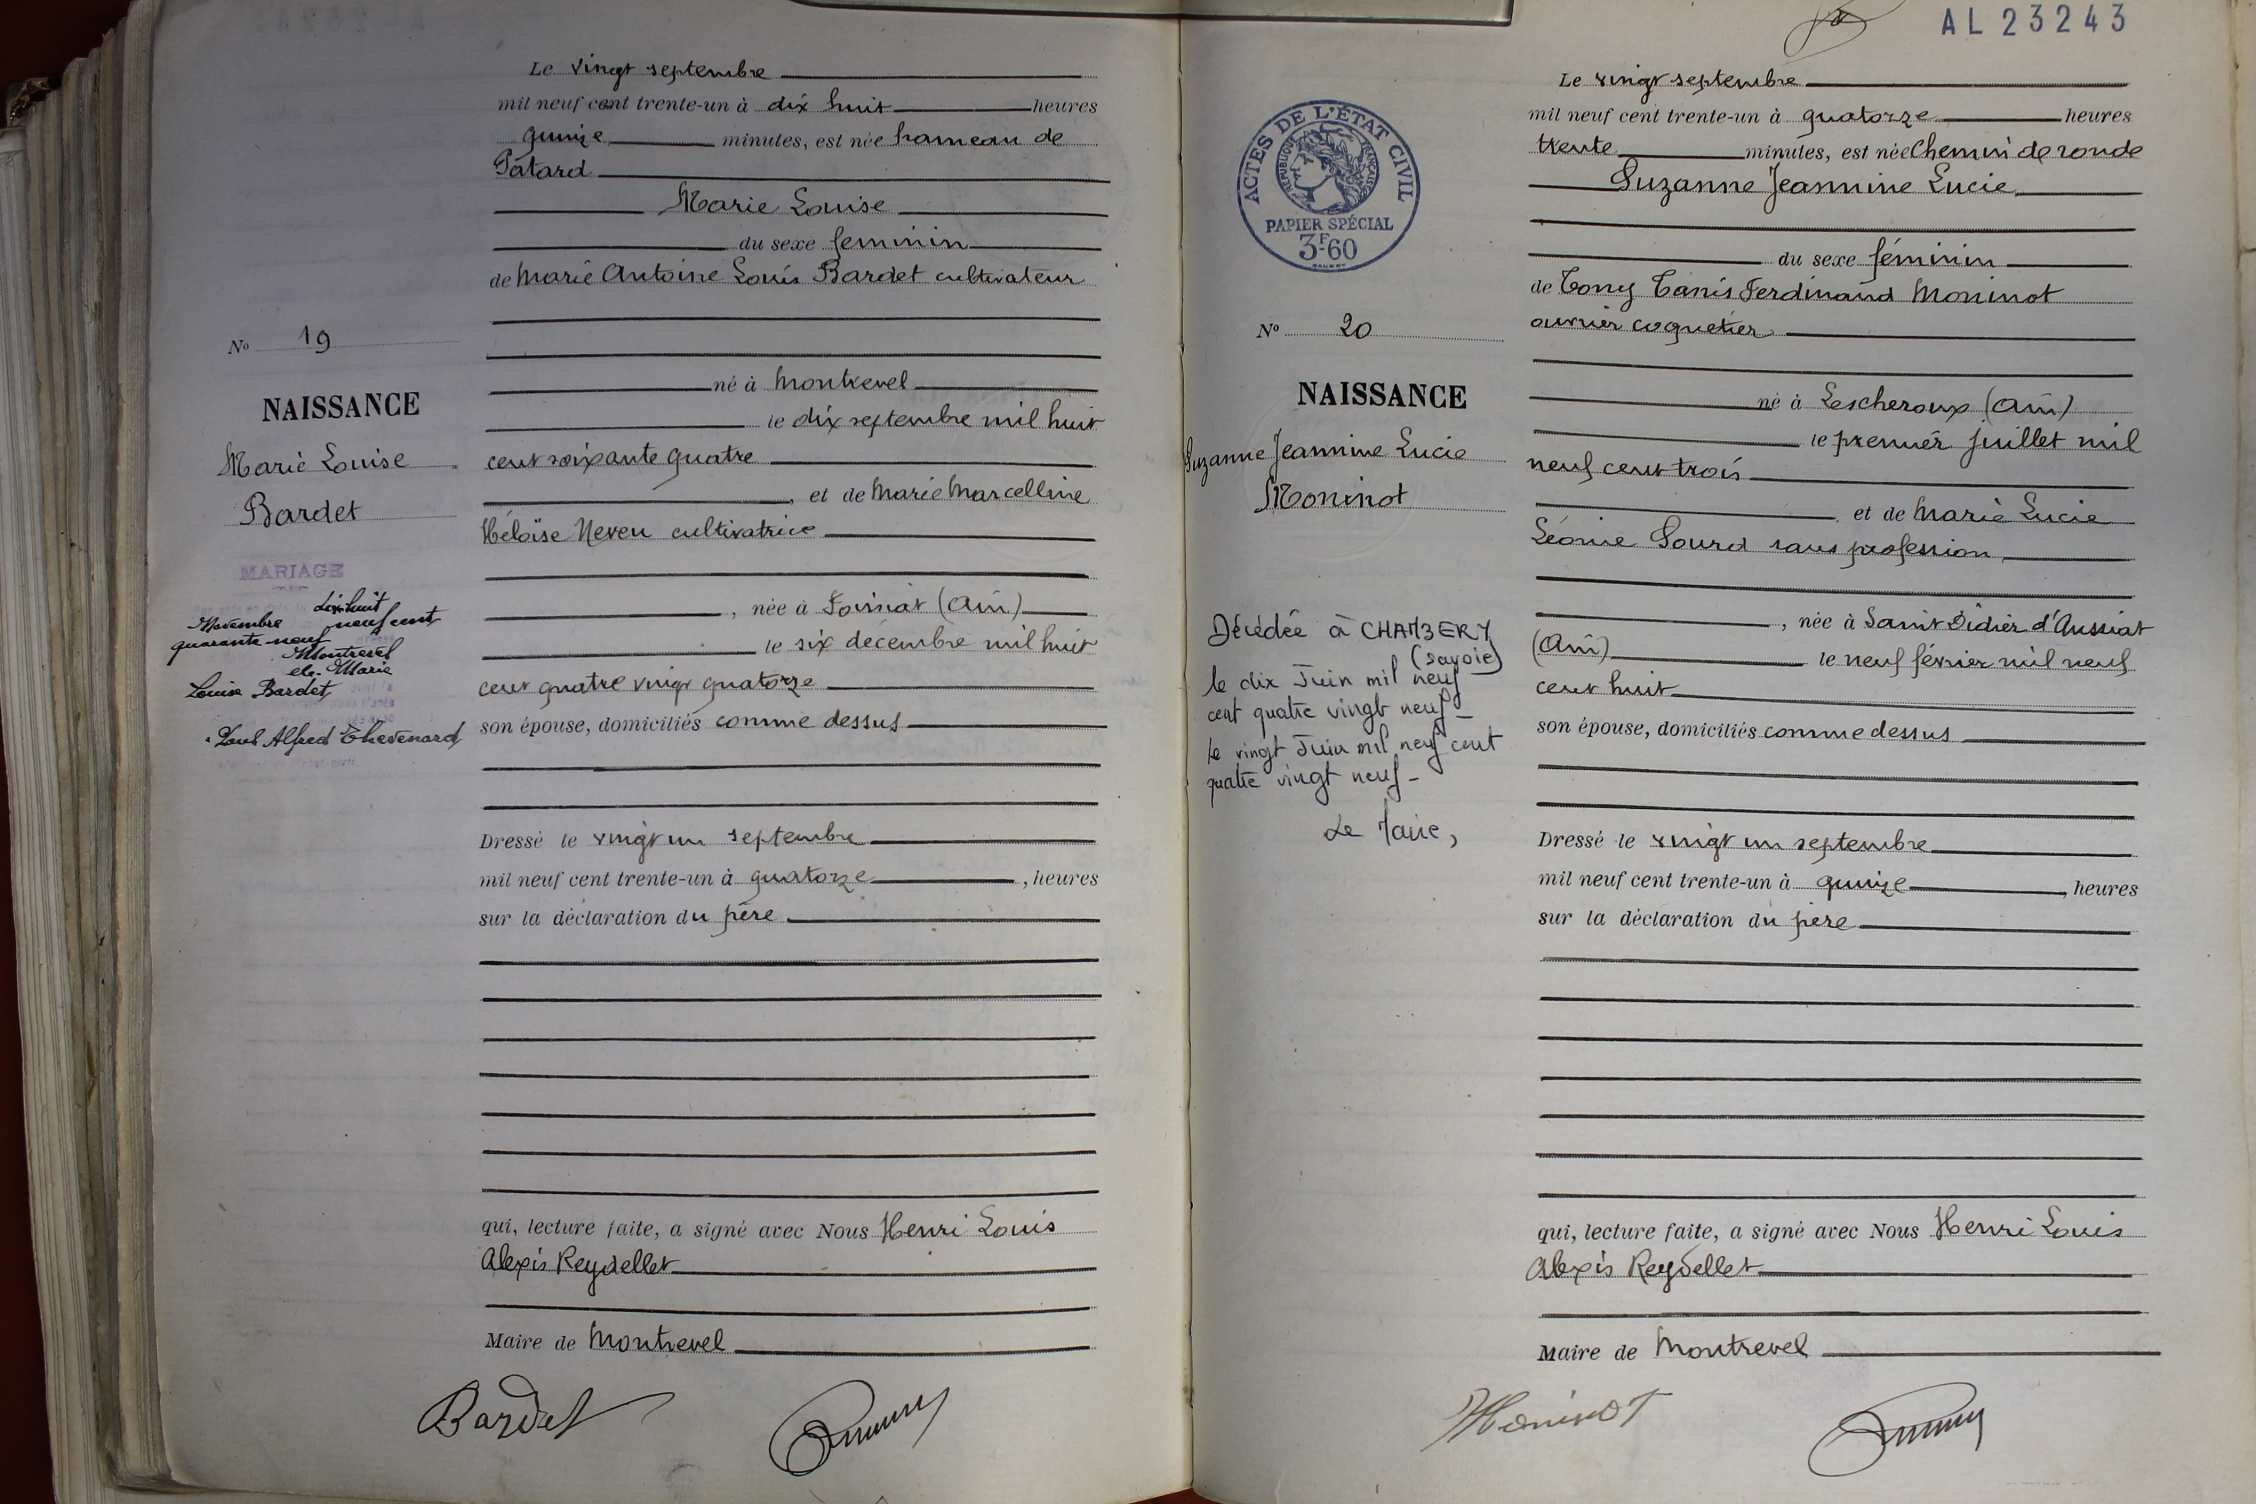 Le vingt septembre
mil neuf cent trente-un à dix huit heures
quinze minutes, est née hameau de
Patard
Marie Louise
du sexe feminin
de Marie Antoine Louis Bardet cultivateur
né à Montrevel
le dix septembre mil huit
cent soixante quatre
et de Marie Marcelline
Héloïse Neveu cultivatrice
, née à Foissiat (Ain)
le six décembre mil huit
cent quatre vingt quatorze
son épouse, domiciliés comme dessus
Dressé le vingt un septembre
mil neuf cent trente-un à quatorze, heures
sur la déclaration du père
qui, lecture faite, a signé avec Nous Henri Louis
Alexis Reydellet
Maire de Montrevel
Bardet
No 19
NAISSANCE
Marie Louise
Bardet
MARIAGE
dix huit
Novembre neuf cent
quarante neuf
Montrevel
Marie
Louise Bardet
Paul Alfred Thevenard
AL23243
ACTES DE L'ÉTAT CIVIL
RÉPUBLIQUE FRANÇAISE
PAPIER SPÉCIAL
3F.60
No 20
NAISSANCE
Suzanne Jeannine Lucie
Moninot
Décédée à CHAMBERY
(Savoie)
le dix Juin mil neuf
cent quatre vingt neuf_
Le vingt Juin mil neuf cent
quatre vingt neuf_
Le Maire,
Le vingt septembre
mil neuf cent trente-un à quatorze heures
trente minutes, est née Chemin de ronde
Suzanne Jeannine Lucie
du sexe féminin
de Tony Tanis Ferdinand Moninot
ouvrier coquetier
né à Lescheroux (Ain)
le premier juillet mil
neuf cent trois
et de Marie Lucie
Léonie Gourd sans profession
, née à Saint Didier d'Aussiat
(Ain) le neuf février mil neuf
cent huit
son épouse, domiciliés comme dessus
Dressé le vingt un septembre
mil neuf cent trente-un à quinze, heures
sur la déclaration du père
qui, lecture faite, a signé avec Nous Henri Louis
Alexis Reydellet
Maire de Montrevel
Moninot